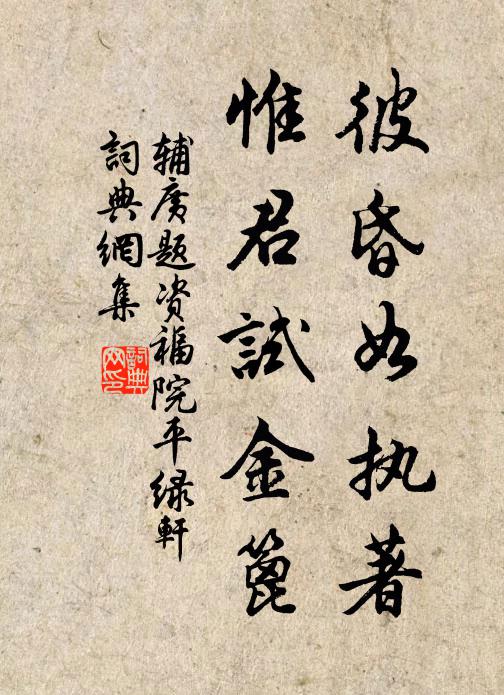 彼昏如执著
惟君試金篦
辅廣题资福院平绿軒
詞典網集
詞典網印